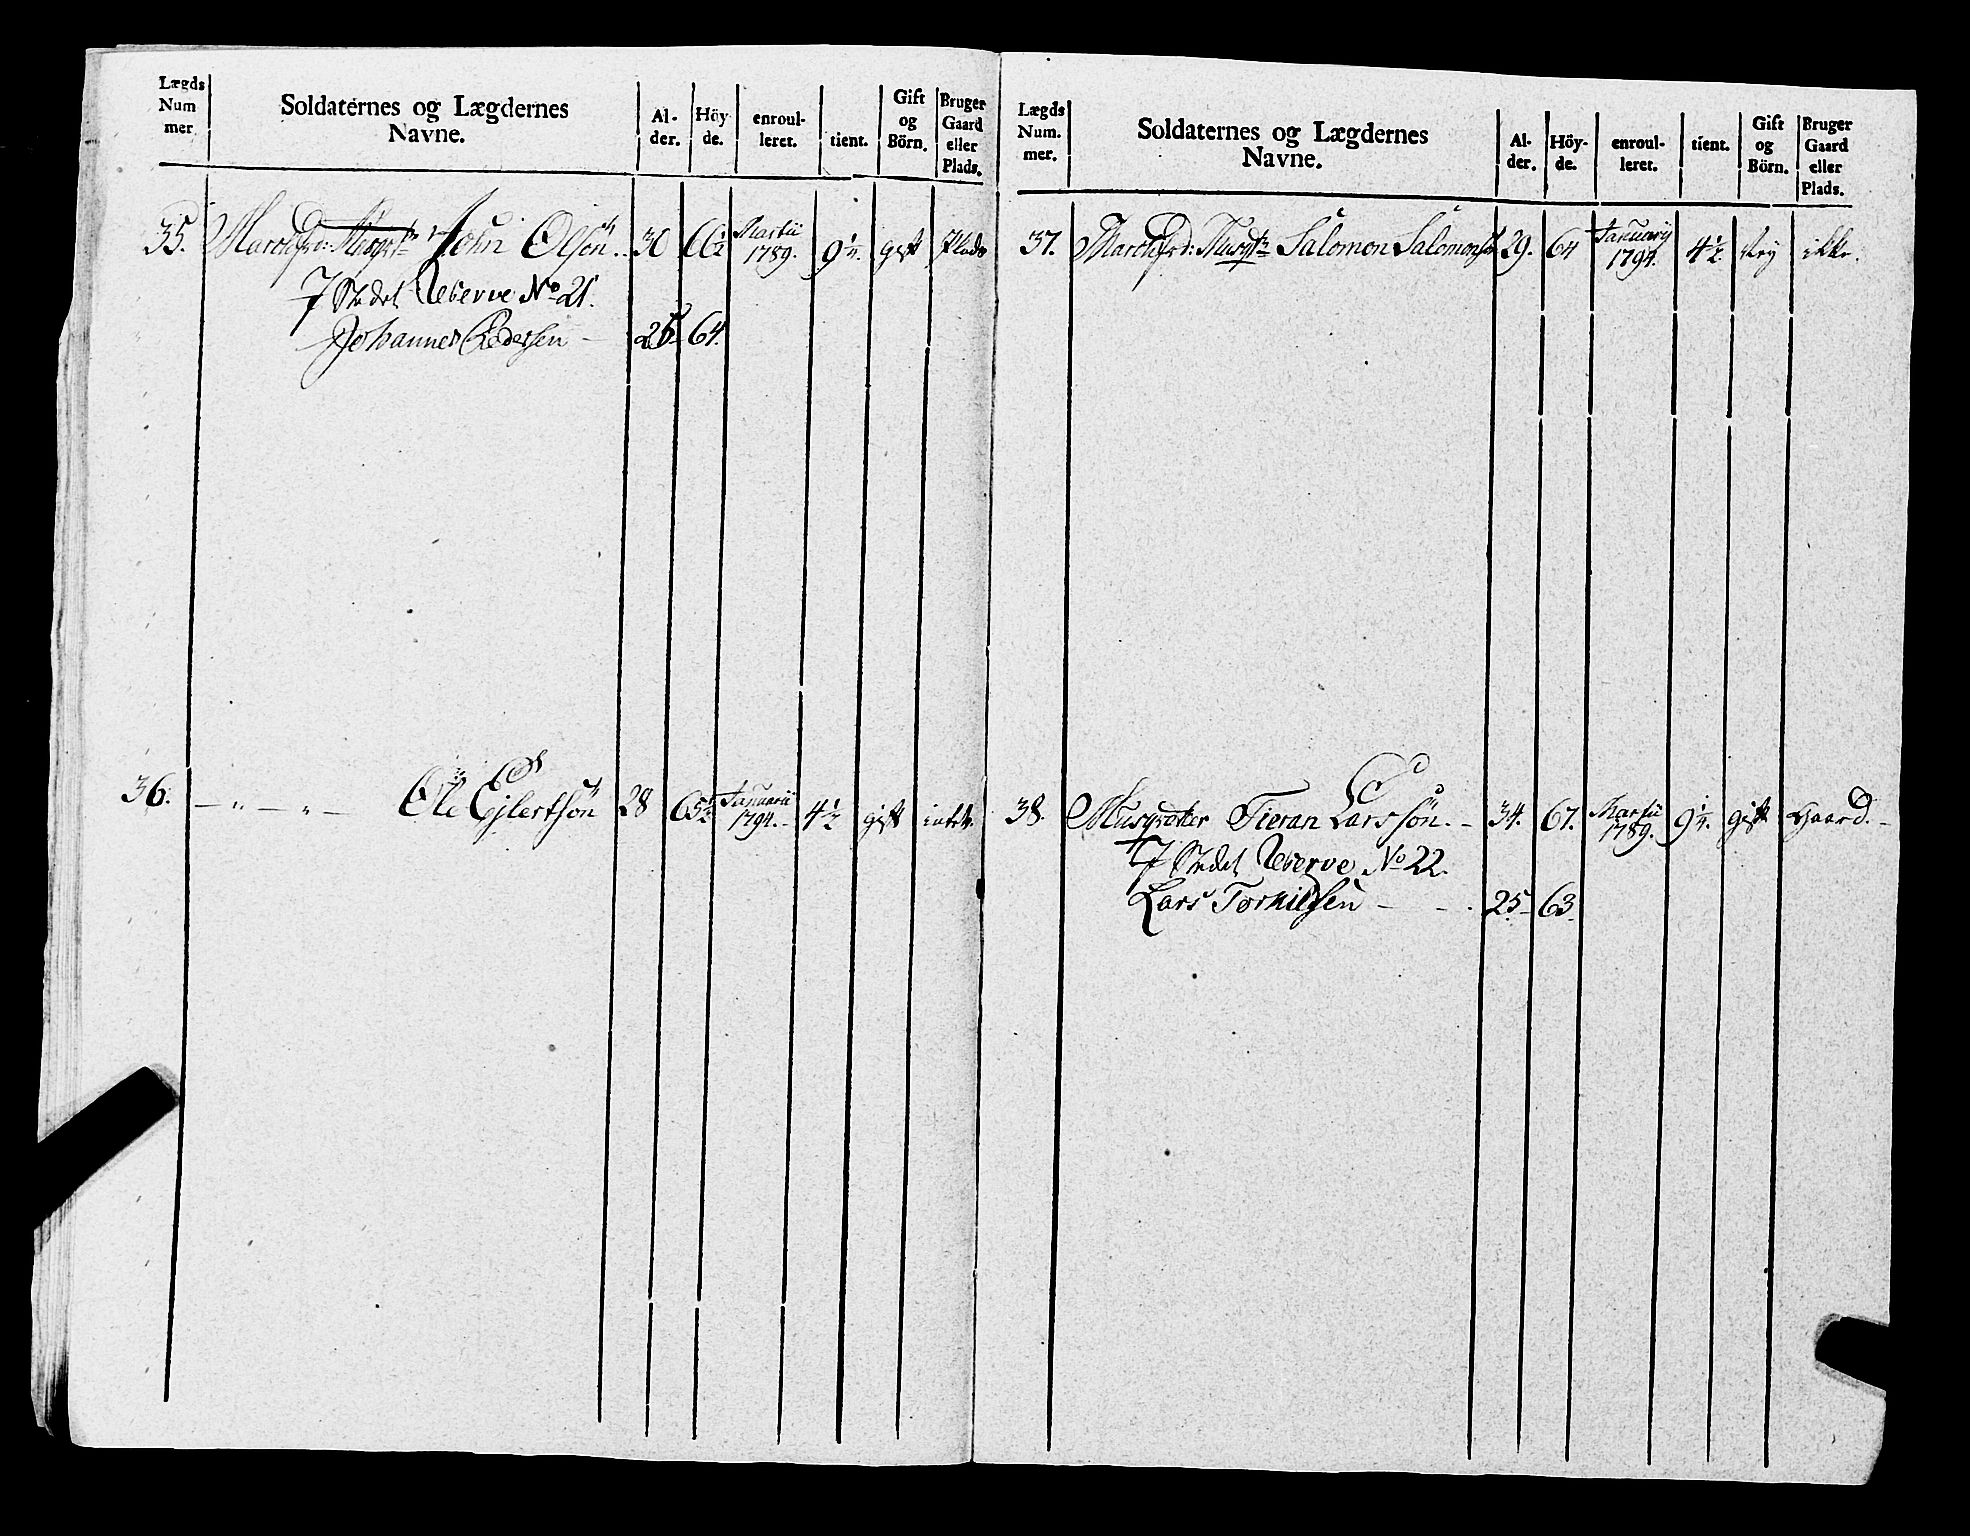 Lægds Num mer
Soldaternes og Lægdernes Navne.
Al- der.
Höy- de.
enroul- leret.
tient.
Gift og Börn.
Bruger Gaard eller Plads.
35. Marchfrd: John Olsön.. 30 66½ Martii 1789. 9¼. gift Plads
I Stedet Reserve No 21.
Johannes Pedersen - 25 64.
36. - " - " - Ole Ejlertsön 28 65½ Januarii 1794. - 4½ gift intet.
Lægds Num. mer.
Soldaternes og Lægdernes Navne.
Al- der.
Höy- de.
enroul- leret.
tient.
Gift og Börn.
Bruger Gaard eller Plads.
37. Marchfrd: Musqtr Salomon Salomonsön 29. 64 Januarij 1794. 4½ Ney ikke.
38. Musqvetter Larssön. - 34. 67. Martii 1789. 9¼. gift Gaard. -
I Stedet Reserve No 22.
Lars Torkildsen - - . 25 - 63 -